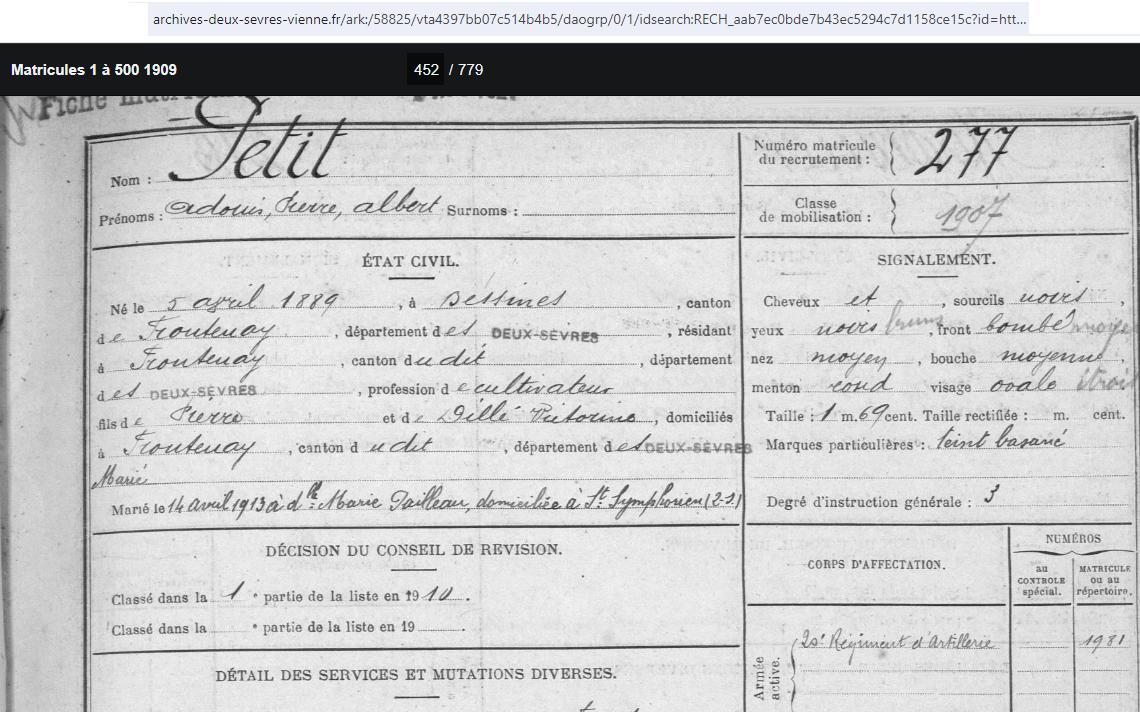 archives-deux-sevres-vienne.fr/ark:/58825/vta4397bb07c514b4b5/daogrp/0/1/idsearch:RECH_aab7ec0bde7b43ec5294c7d1158ce15c?id=htt...
Matricules 1 à 500 1909
452 / 779
Nom : Petit
Prénoms : Adonis, Pierre, albert Surnoms :
Numéro matricule
du recrutement : 277
Classe
de mobilisation : 1907
ÉTAT CIVIL.
Né le 5 avril 1889, à Bessines, canton
de Frontenay, département des DEUX-SÈVRES, résidant
à Frontenay, canton dudit, département
des DEUX-SÈVRES, profession de cultivateur
fils de Pierre et de Dillé, domiciliés
à Frontenay, canton dudit, département des DEUX-SÈVRES
Marié
Marié le 14 avril 1913 à dlle Marie Tailleau, domiciliée à St Symphorien (2-S.)
SIGNALEMENT.
Cheveux et, sourcils noirs,
yeux noirs bruns, front bombé moyen
nez moyen, bouche moyenne,
menton rond visage ovale étroit
Taille : 1 m. 69 cent. Taille rectifiée : m. cent.
Marques particulières : teint basané
Degré d'instruction générale : 3
DÉCISION DU CONSEIL DE REVISION.
Classé dans la 1e partie de la liste en 1910.
Classé dans la e partie de la liste en 19 .
DÉTAIL DES SERVICES ET MUTATIONS DIVERSES.
CORPS D'AFFECTATION.
NUMÉROS
au
CONTROLE
spécial.
MATRICULE
ou au
répertoire.
Armée
active.
20e Régiment d'Artillerie 1981